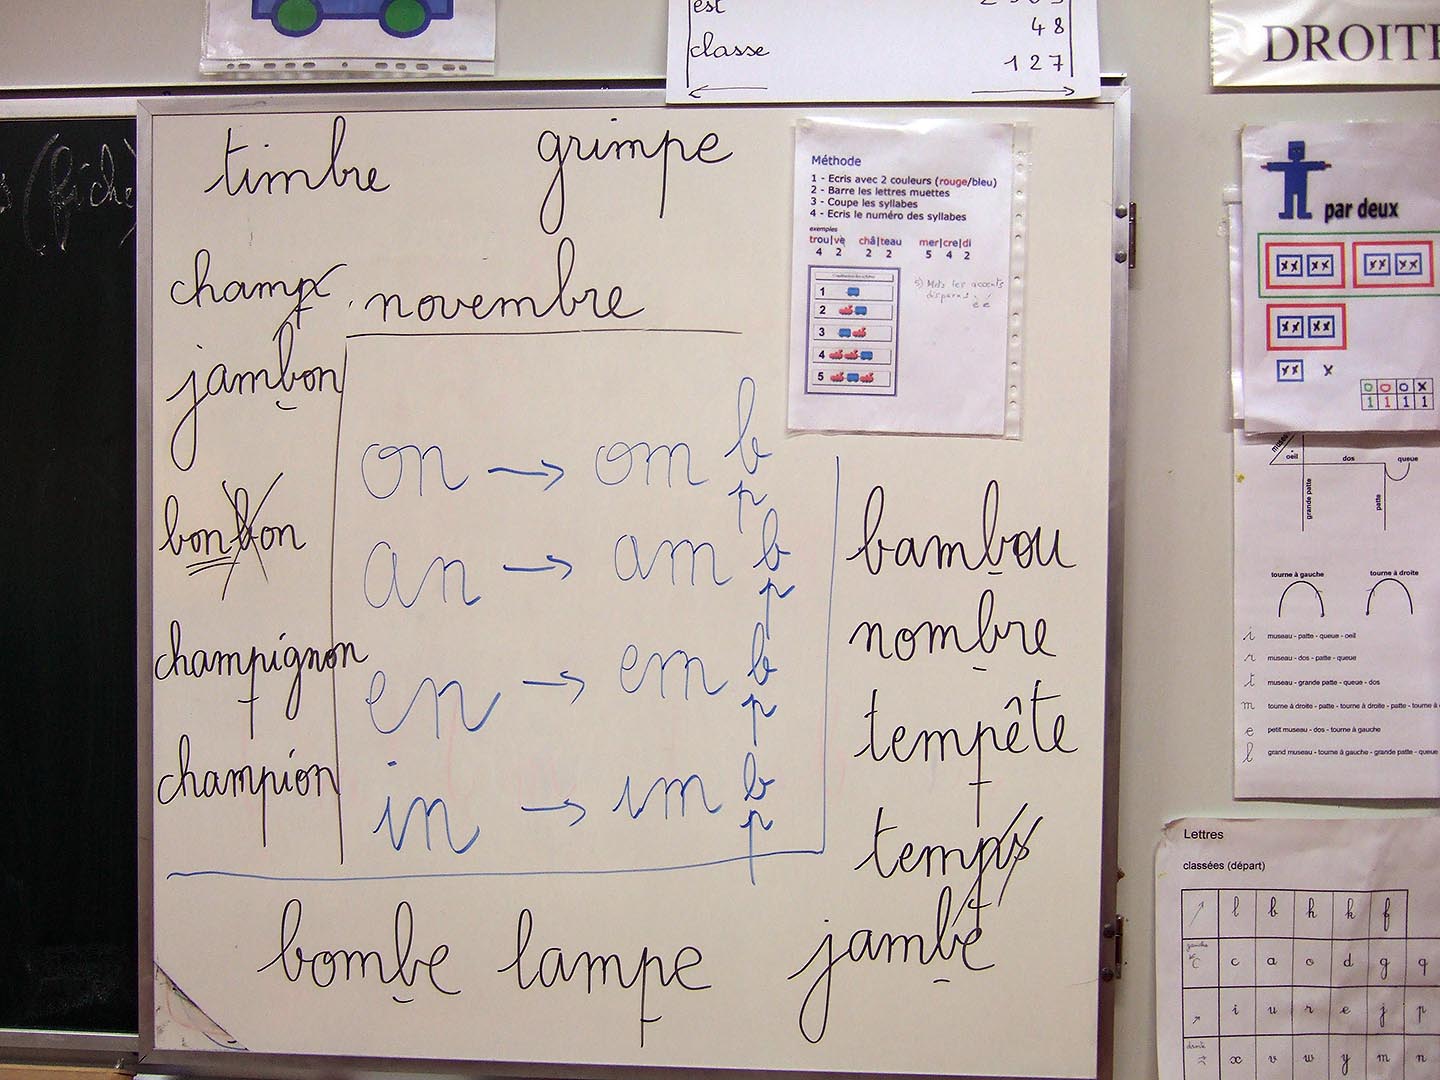 est
48
classe
127
DROITE
(fiche)
timbre grimpe
champ novembre
jambon
bonbon
champignon
champion
on → om b
p
an → am b
p
en → em b
p
in → im b
p
bambou
nombre
tempête
temps
bombe lampe jambe
Méthode
1 - Ecris avec 2 couleurs (rouge/bleu)
2 - Barre les lettres muettes
3 - Coupe les syllabes
4 - Ecris le numéro des syllabes
exemples
trou|ve châ|teau mer|cre|di
4 2 2 2 5 4 2
1
2
3
4
5
5) Mets les accents
disparus è é
par deux
xx xx xx xx
xx xx
xx x
0 0 0 x
1 1 1 1
museau
oeil dos queue
grande patte
patte
tourne à gauche tourne à droite
i museau - patte - queue - oeil
r museau - dos - patte - queue
t museau - grande patte - queue - dos
m tourne à droite - patte - tourne à droite - patte - tourne à
e petit museau - dos - tourne à gauche
l grand museau - tourne à gauche - grande patte - queue
Lettres
classées (départ)
l b h k f
c a o d g q
i u r e j p
x v w y m n